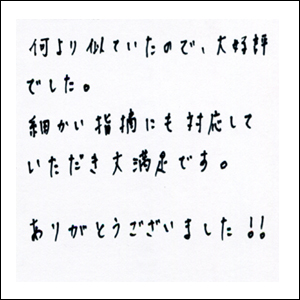 何より似ていたので、大好評
でした。
細かい指摘にも対応して
いただき大満足です。
ありがとうございました!!